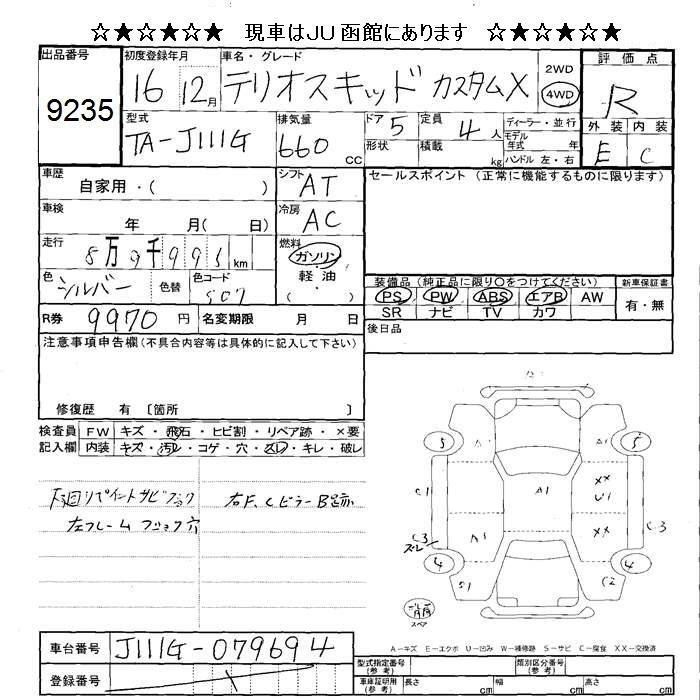 ☆★☆★☆★ 現車はJU函館にあります ☆★☆★☆★
出品番号 9235
初度登録年月 16 12月
車名・グレード テリオスキッド カスタムX
2WD 4WD
評価点 R
外装 内装
E C
型式 TA-J111G
排気量 660 cc
ドア 5
形状
定員 4人
積載 kg
ディーラー・並行
モデル年式 年
ハンドル 左・右
車歴 自家用・( )
シフト AT
セールスポイント (正常に機能するものに限ります)
車検 年 月( 日)
冷房 AC
走行 8万9千995km
燃料 ガソリン・軽油・( )
色 シルバー 色替
色コード S07
装備品 (純正品に限り○をつけてください) 新車保証書
PS PW ABS エアB AW 有・無
SR ナビ TV カワ
R券 9970円 名変期限 月 日
後日品
注意事項申告欄(不具合内容等は具体的に記入して下さい)
修復歴 有 〔箇所 〕
検査員記入欄
FW キズ・飛石・ヒビ割・リペア跡・×要
内装 キズ・汚れ・コゲ・穴・スレ・キレ・破レ
下廻リペイントサビフック
左フレームフック穴
右F、CピラーB足跡
A1 A1
5 5
C1 A1 XX U1
A1 XX
C3 スレ C3
4 4
S1 C2
スペア
A-キズ E-エクボ U-凹み W-補修跡 S-サビ C-腐食 XX-交換済
車台番号 J111G-079694
登録番号
型式指定番号(参考) 類別区分番号(参考)
車庫証明用(参考) 長さ cm 幅 cm 高さ cm